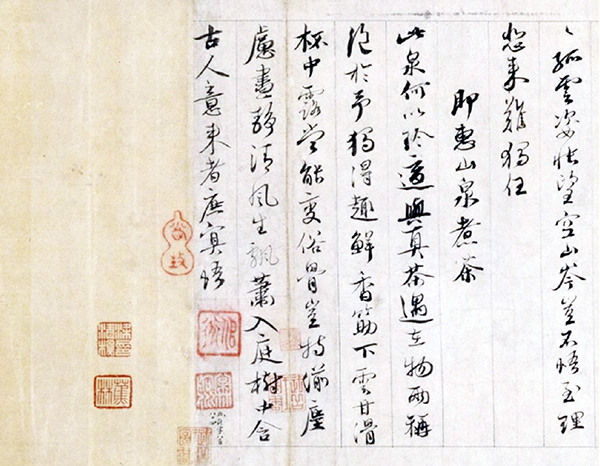 〻孤雲姿悵望空山岑不悟至理
來難獨任
即惠山泉煮茶
此泉何以珍適與真茶遇在物兩稱
絕於予獨得趣鮮香筯下雲甘滑
杯中露當能變俗骨豈特湔塵
慮晝靜清風生飄蕭入庭樹中含
古人意來者庶冥悟